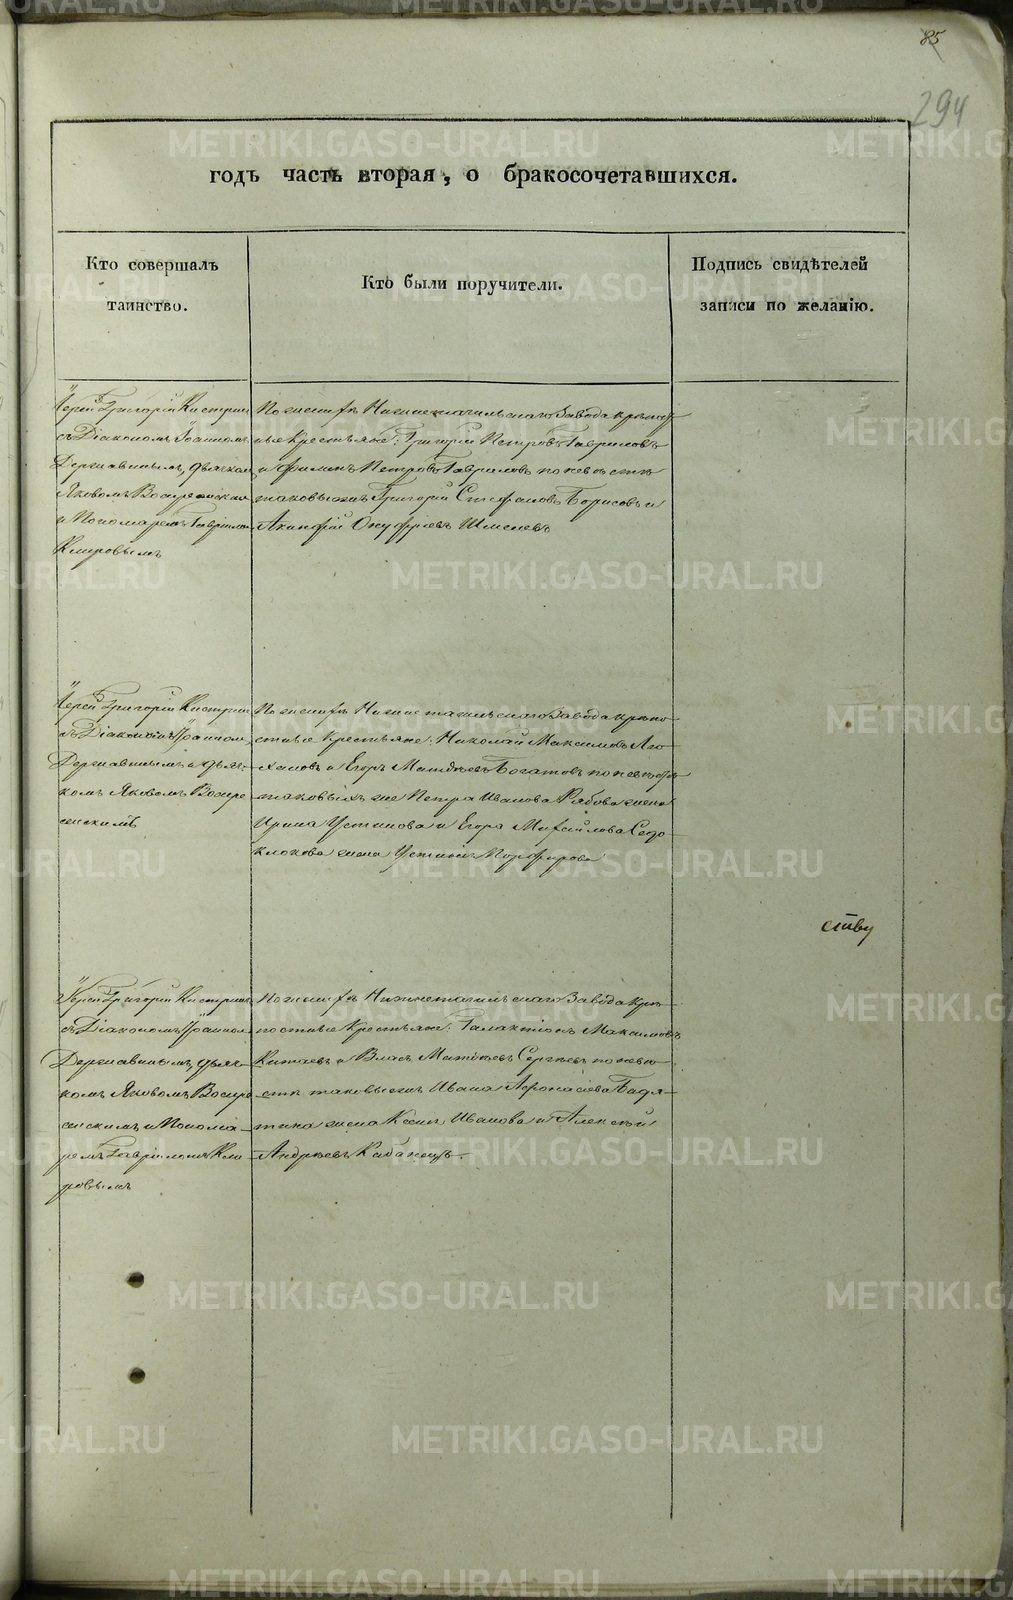 85
294
годъ часть вторая, о бракосочетавшихся.
Кто совершалъ
таинство.
Кто были поручители.
Подпись свидѣтелей
записи по желанію.
Іерей Григорій Кистрин
съ Діакономъ Іоанномъ
Державинымъ, дьячком
Яковомъ Воскресенским
и Пономаремъ Гаврилом
Кыровымъ
По женихѣ Нижнетагильскаго Завода крѣпост
ные Крестьяне: Григорій Петровъ Гавриловъ
и Филипъ Петровъ Гавриловъ по невѣстѣ
таковыежъ Григорій Стефановъ Борисовъ и
Акинфій Онуфріевъ Шмелевъ
Іерей Григорій Кистрин
съ Діакономъ Іоанном
Державинымъ и дьяч-
комъ Яковомъ Воскре
сенскимъ
По женихѣ Нижнетагильскаго Завода крѣпо-
стные Крестьяне: Николай Максимовъ
и Егоръ Матвѣевъ Богатовъ по невѣстѣ
таковыхъ же Петра Иванова Рябова жена
Ирина Устинова и Егора Михайлова Седо-
клокова жена Устинья Порфирова
ству
Іерей Григорій Кистрин
съ Діакономъ Іоанном
Державинымъ, дьяч-
комъ Яковомъ Воскре
сенскимъ и Понома-
ремъ Гавриломъ Кы
ровымъ
По женихѣ Нижнетагильскаго Завода крѣ-
постные Крестьяне: Галактіонъ Максимовъ
Китаевъ и Власъ Матвѣевъ Сергѣевъ по невѣ-
стѣ таковыежъ Ивана Афонасіева
жена Иванова и Алексѣй
Андреевъ Кабанецъ.
METRIKI.GASO-URAL.RU